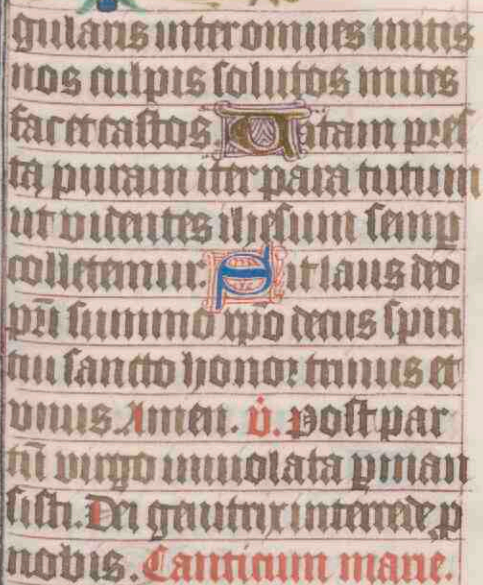 gularis inter omnes mitis
nos culpis solutos mites
fac et castos Uitam pres
ta puram iter para tutum
ut videntes ihesum semp
colletemur. Sit laus deo
pri summo xpo decus spiri
tui sancto honor trinus et
vnus. Amen. v. post par
tu virgo inuiolata pman
sisti. Dei genitrix intercede p
nobis. Canticum marie.